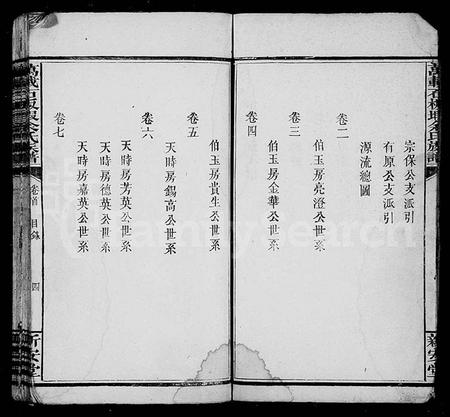 萬載石板垻余氏族譜
新安堂
宗保公支派引
有原公支派引
源流總圖
卷二
伯玉房亮澄公世系
卷三
伯玉房金華公世系
卷四
伯玉房貴生公世系
卷五
天時房錫高公世系
卷六
天時房芳英公世系
天時房德英公世系
天時房嘉英公世系
卷七
卷首 目錄
四
新安堂
FamilySearch